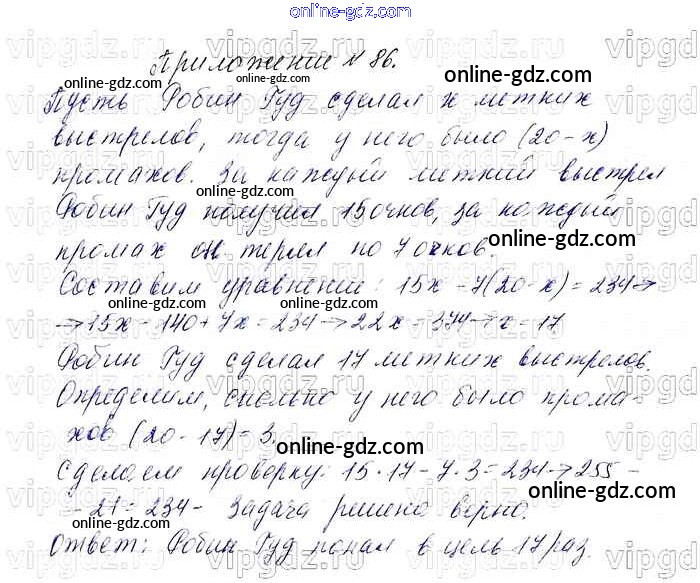 online-gdz.com
Приложение № 86.
Пусть Робин Гуд сделал x метких
выстрелов, тогда у него было (20-x)
промахов. За каждый меткий выстрел
Робин Гуд получил 15 очков, за каждый
промах он терял по 7 очков.
Составим уравнение: 15x - 7(20-x) = 234 →
→ 15x - 140 + 7x = 234 → 22x = 374 → x = 17
Робин Гуд сделал 17 метких выстрелов.
Определим, сколько у него было прома-
хов (20 - 17) = 3.
Сделаем проверку: 15·17 - 7·3 = 234 → 255 -
- 21 = 234 - задача решена верно.
Ответ: Робин Гуд попал в цель 17 раз.